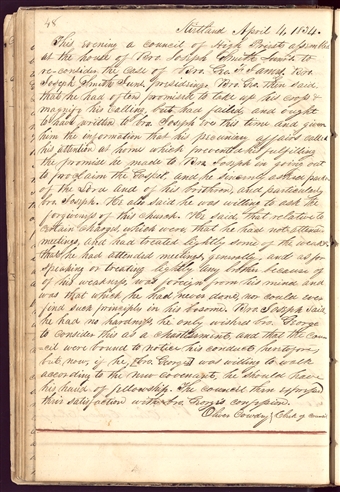 48
Kirtland April 4, 1834.
This evening a council of High Priests assembled
at the house of Bro. Joseph Smith Junr. to
re-consider the case of Bro. Geo. F. James. Bro.
Joseph Smith Junr. presiding. Bro. Geo. then said
that he had often promised to take up his cross &
magnify his calling, but had failed, and ought
to have written to Bro. Joseph ere this time and given
him the information that his pecuniary affairs called
his attention at home which prevented his fulfilling
the promise he made to Bro. Joseph in going out
to proclaim the Gospel, and he sincerely asked pardon
of the Lord and of his brethren, and particularly
bro. Joseph. He also said he was willing to ask the
forgiveness of this church. He said, that relative to
certain charges, which were that he had not attended
meetings, and had treated lightly some of the weak,
that he had attended meetings, generally, and as for
speaking or treating lightly any brother because of
of his weakness was foreign from his mind and
was that which he had never done, nor could ever
find such principle in his bosom. Bro. Joseph said
he had no hardness, he only wished bro. George
to consider this as a chastisement, and that the coun-
cil were bound to notice his conduct heretofore,
but, now if he, [Bro. George] was willing to walk
according to the new covenant, he should have
his hand of fellowship. The council then expressed
their satisfaction with bro. George's confession.
Oliver Cowdery Clerk of council